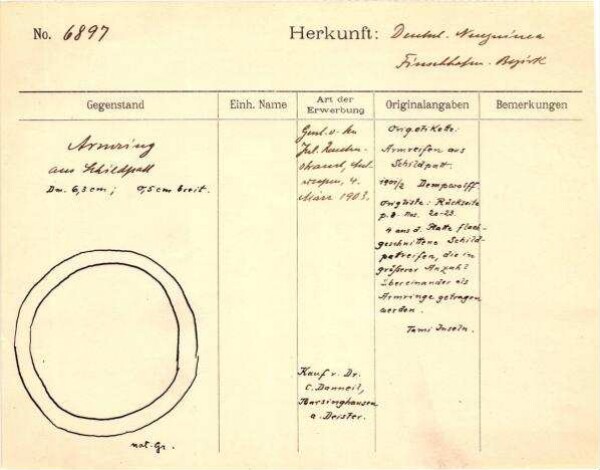 No. 6897
Herkunft: Deutsch. Neuguinea
Finschhafen-Bezirk
Gegenstand
Einh. Name
Art der Erwerbung
Originalangaben
Bemerkungen
Armring
aus Schildpatt
Dm. 6,3 cm; 0,5 cm breit.
nat. Gr.
4.
März 1903.
Kauf v. Dr.
C. Danneil,
Barsinghausen
a. Deister.
Orig. Etikette:
Armreifen aus
Schildpatt.
Dempwolff.
Origliste: Rückseite
p. 8 Nrs. 20-23.
4 aus d. Platte flach
geschnittene Schild-
patreifen, die in
größerer Anzahl
übereinander als
Armringe getragen
werden.
Tami Inseln.